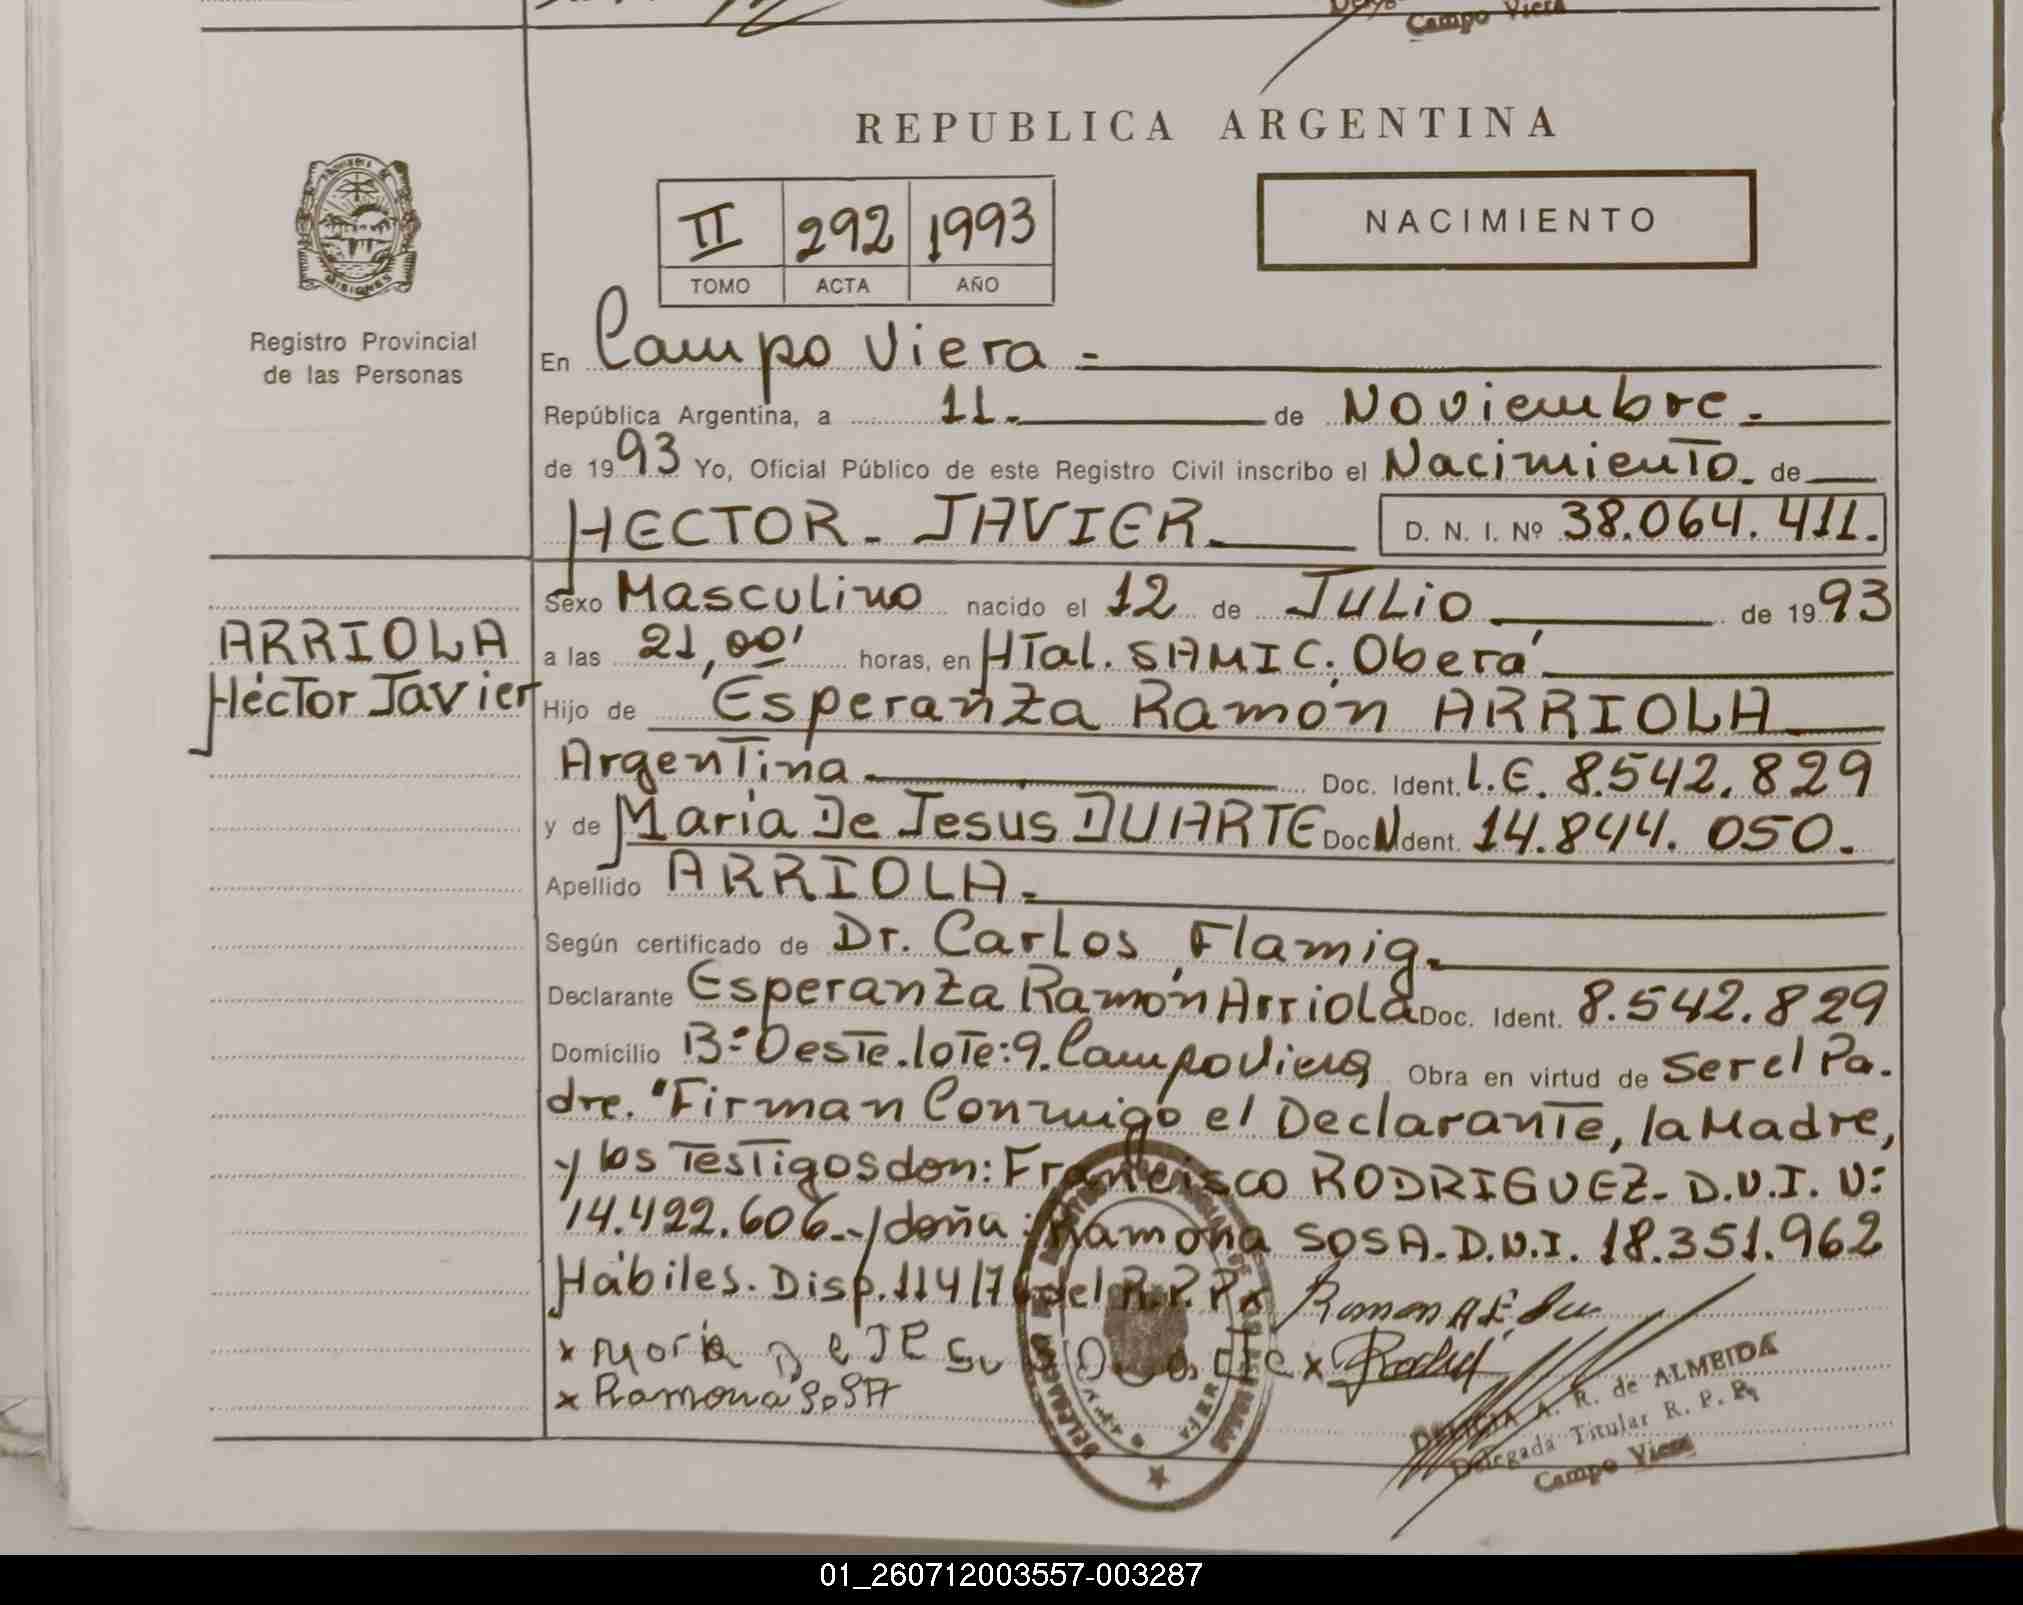 Campo Viera
REPUBLICA ARGENTINA
II 292 1993
TOMO ACTA AÑO
NACIMIENTO
MISIONES
Registro Provincial
de las Personas
En Campo Viera -
República Argentina, a 11. de Noviembre.
de 1993 Yo, Oficial Público de este Registro Civil inscribo el Nacimiento. de
HECTOR - JAVIER. D. N. I. Nº 38.064.411.
Sexo Masculino nacido el 12 de Julio de 1993
ARRIOLA
Héctor Javier
a las 21,00' horas, en HTal. SAMIC. Oberá
Hijo de Esperanza Ramón ARRIOLA
Argentina Doc. Ident. L.E. 8.542.829
y de María De Jesus DUARTE Doc. Ident. 14.844.050.
Apellido ARRIOLA.
Según certificado de Dr. Carlos Flamig.
Declarante Esperanza Ramón Arriola Doc. Ident. 8.542.829
Domicilio Bº Oeste. lote: 9. Campo Viera Obra en virtud de Ser el Pa.
dre. "Firman Conmigo el Declarante, la Madre,
y los Testigos don: Francisco RODRIGUEZ. D.N.I. Nº
14.422.606.- y doña: Ramona SOSA. D.N.I. 18.351.962
Hábiles. Disp. 114/76 del R.P.P.
x Maria De Jesus Duarte x
x Ramona Sosa
DELICIA A. R. de ALMEIDA
Delegada Titular R. P. P.
Campo Viera
01_260712003557-003287